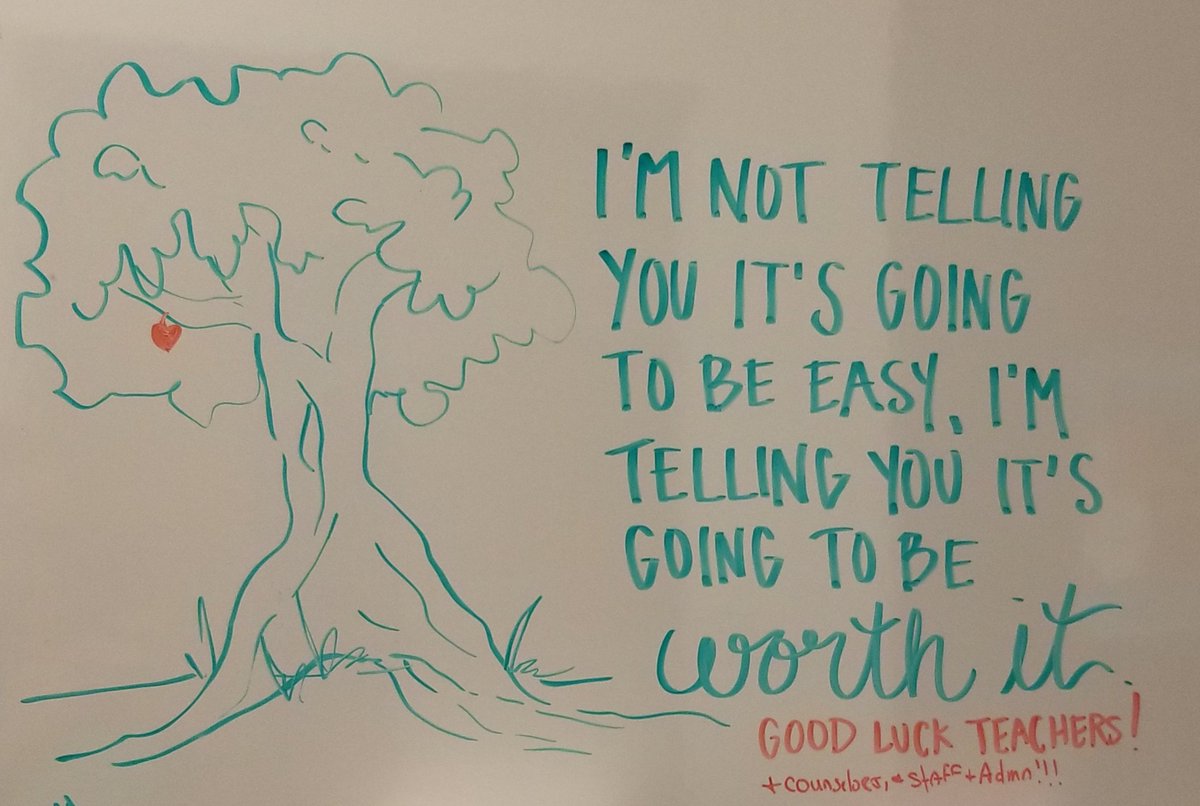 I'M NOT TELLING
YOU IT'S GOING
TO BE EASY, I'M
TELLING YOU IT'S
GOING TO BE
worth it.
GOOD LUCK TEACHERS!
+ staff + Admn'!!!